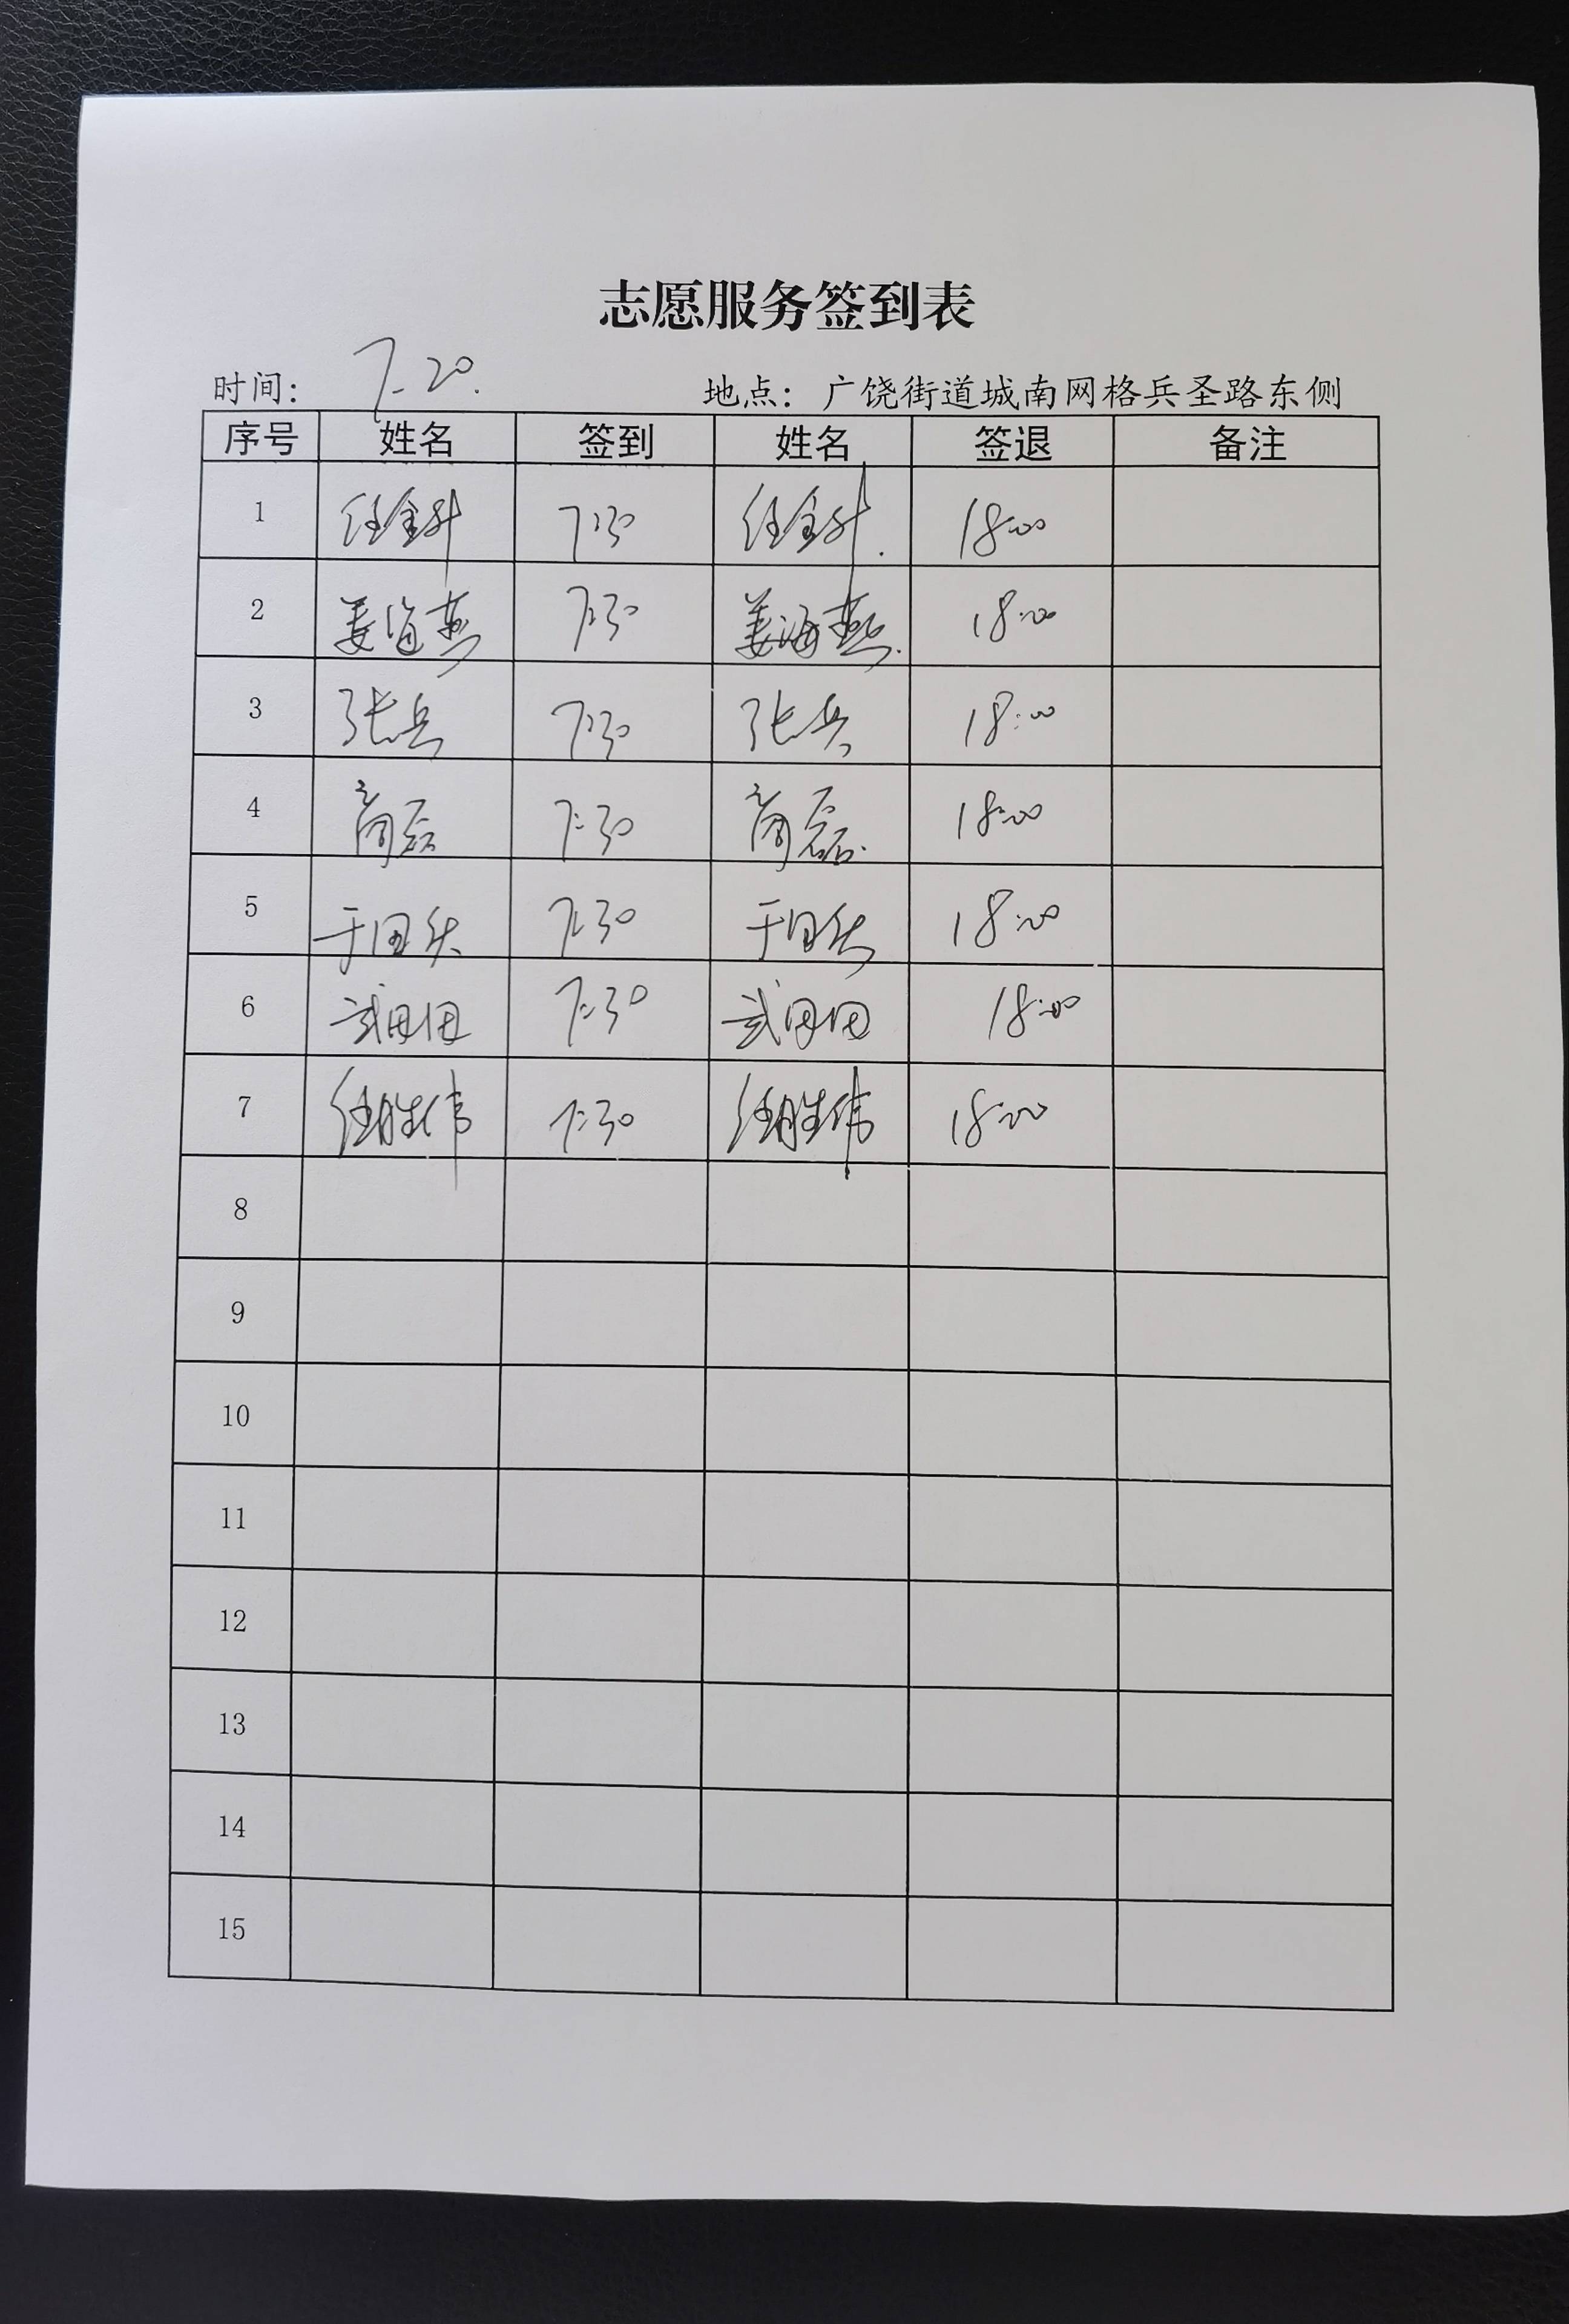 志愿服务签到表
时间: 7-20. 地点: 广饶街道城南网格兵圣路东侧
序号 姓名 签到 姓名 签退 备注
1 任金升 7:30 任金升. 18:00
2 姜海燕 7:30 姜海燕. 18:00
3 张兵 7:30 张兵 18:00
4 商磊 7:30 商磊. 18:00
5 7:30 18:00
6 武田田 7:30 武田田 18:00
7 任胜伟 7:30 任胜伟 18:00
8
9
10
11
12
13
14
15